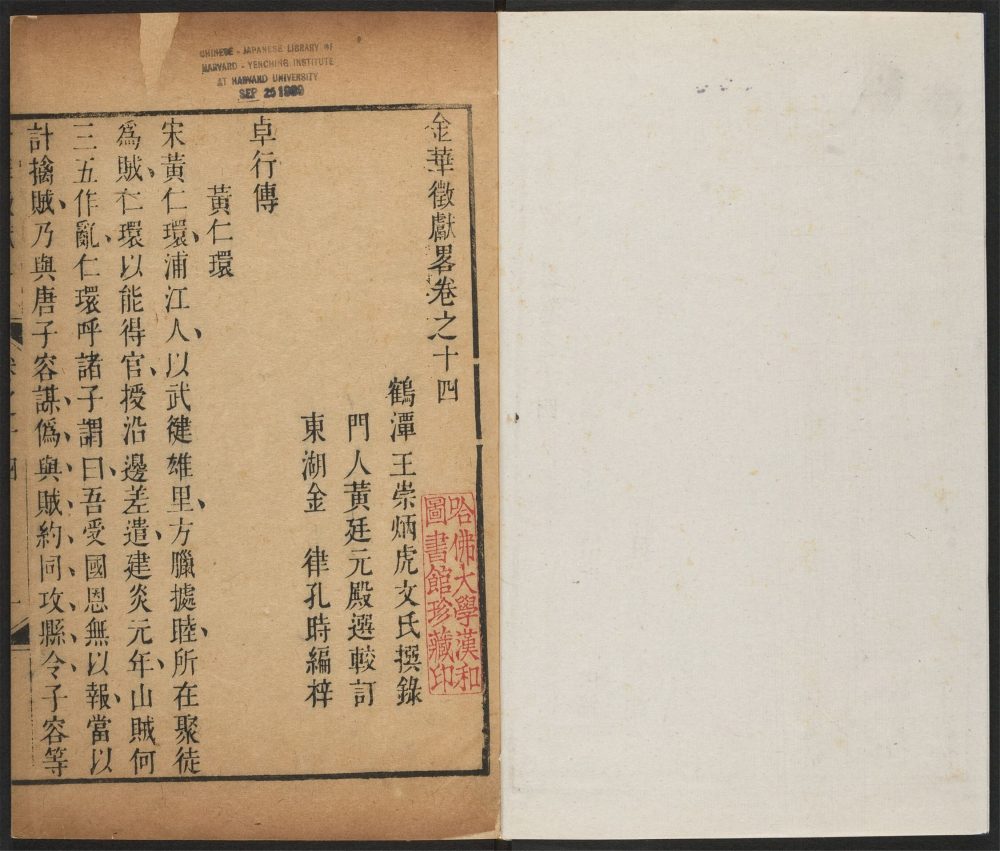 CHINESE - JAPANESE LIBRARY OF
HARVARD - YENCHING INSTITUTE
AT HARVARD UNIVERSITY
SEP 25 1939
金華徵獻畧卷之十四
鶴潭王崇炳虎文氏撰錄
門人黃廷元殿選較訂
東湖金　律孔時編梓
卓行傳
黃仁環
宋黃仁環、浦江人、以武健雄里、方臘據睦、所在聚徒
爲賊、仁環以能得官、授沿邊差遣、建炎元年、山賊何
三五作亂、仁環呼諸子謂曰、吾受國恩無以報、當以
計擒賊、乃與唐子容謀、僞與賊約同攻縣令子容等
哈佛大學漢和
圖書館珍藏印